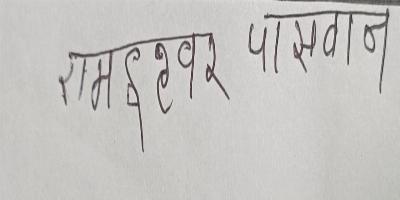 रामईश्वर पासवान